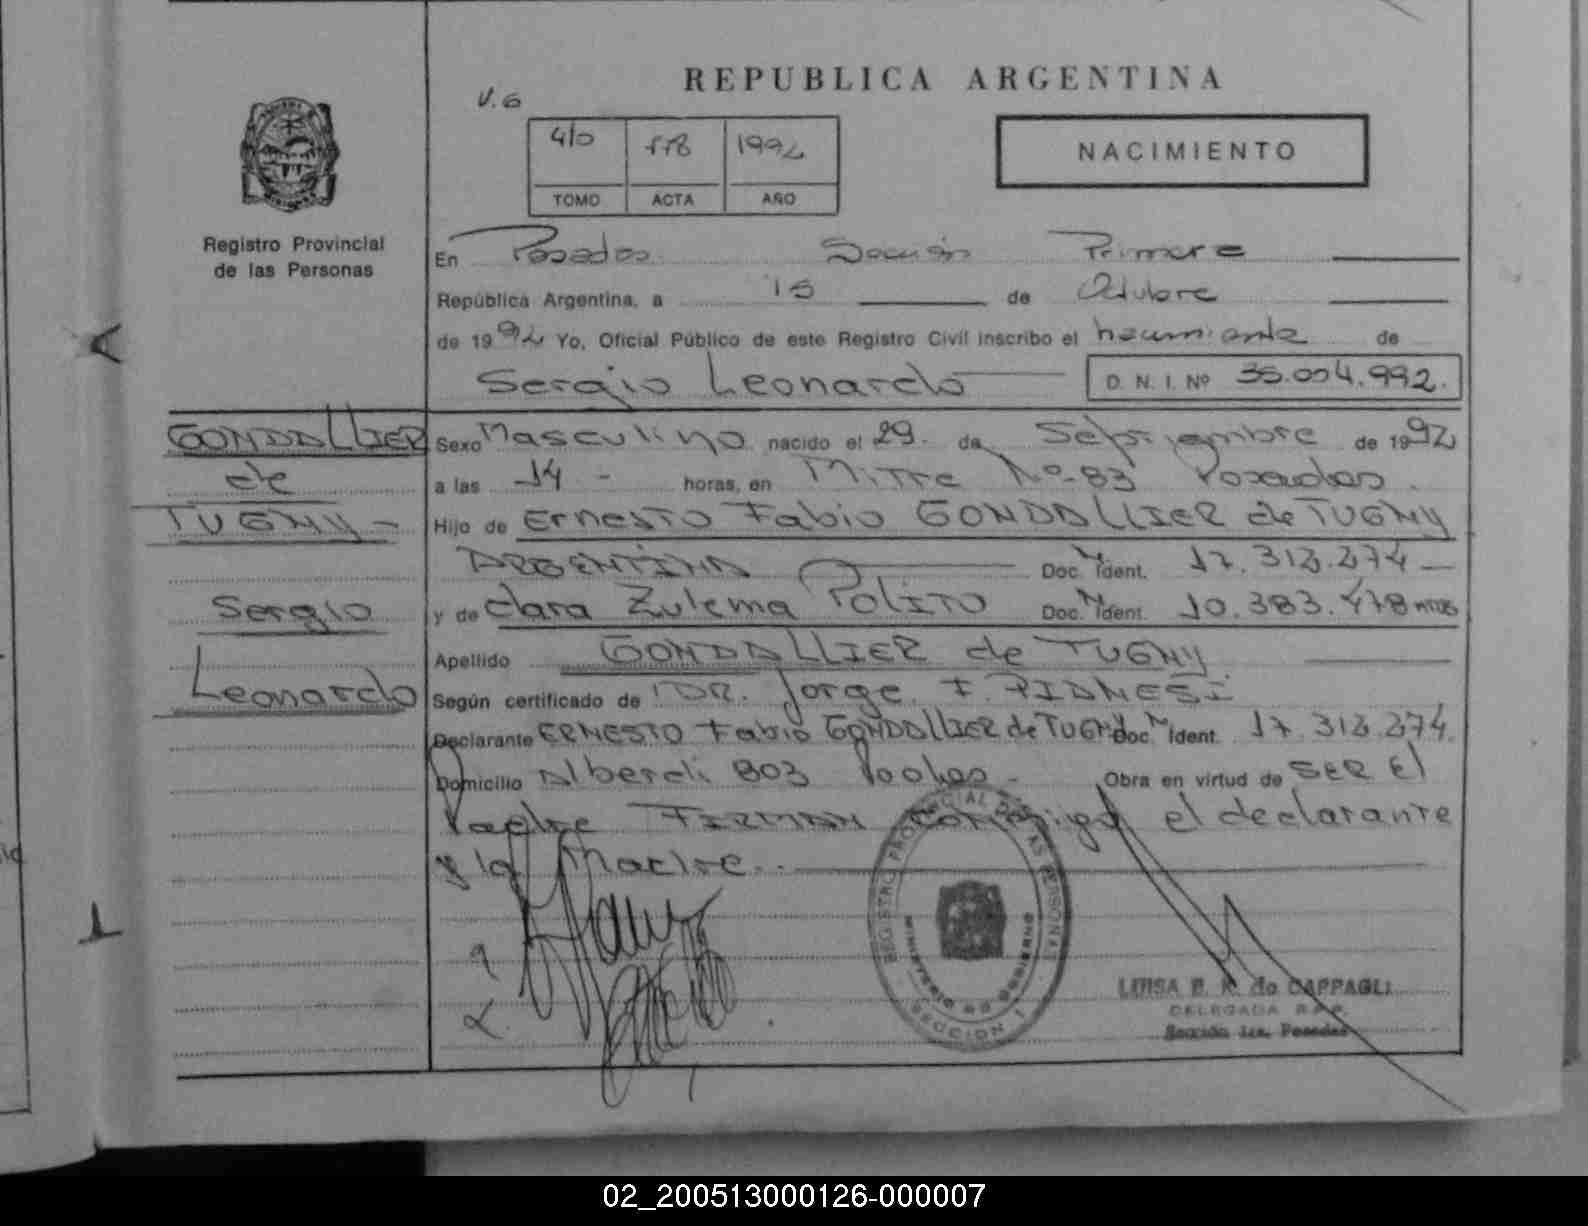 REPUBLICA ARGENTINA
V. 6
4/0 1992
TOMO ACTA AÑO
NACIMIENTO
Registro Provincial
de las Personas
En Posadas Sección Primera
República Argentina, a 15 de Octubre
de 1992 Yo, Oficial Público de este Registro Civil inscribo el nacimiento de
Sergio Leonardo D. N. I. Nº 35.004.992.
GONDALLIER
de
TUGNY -
Sergio
Leonardo
Sexo Masculino nacido el 29. de Septiembre de 1992
a las 14 - horas, en Mitre Nº 83 Posadas.
Hijo de Ernesto Fabio GONDALLIER de TUGNY
ARGENTINA Doc. N Ident. 17.312.274
y de Clara Zulema POLITO Doc. N Ident. 10.383.478
Apellido GONDALLIER de TUGNY
Según certificado de DR. Jorge F. PIANESI
Declarante ERNESTO Fabio GONDALLIER de TUGNY Doc. N Ident. 17.312.274.
Domicilio Alberdi 803 Obra en virtud de SER El
Padre FIRMAN conmigo el declarante
y la Madre.
REGISTRO PROVINCIAL DE LAS PERSONAS
MINISTERIO DE GOBIERNO
SECCION 1
LUISA E. K. de CAPPAGLI
DELEGADA R.P.P.
Sección 1ra. Posadas
02_200513000126-000007